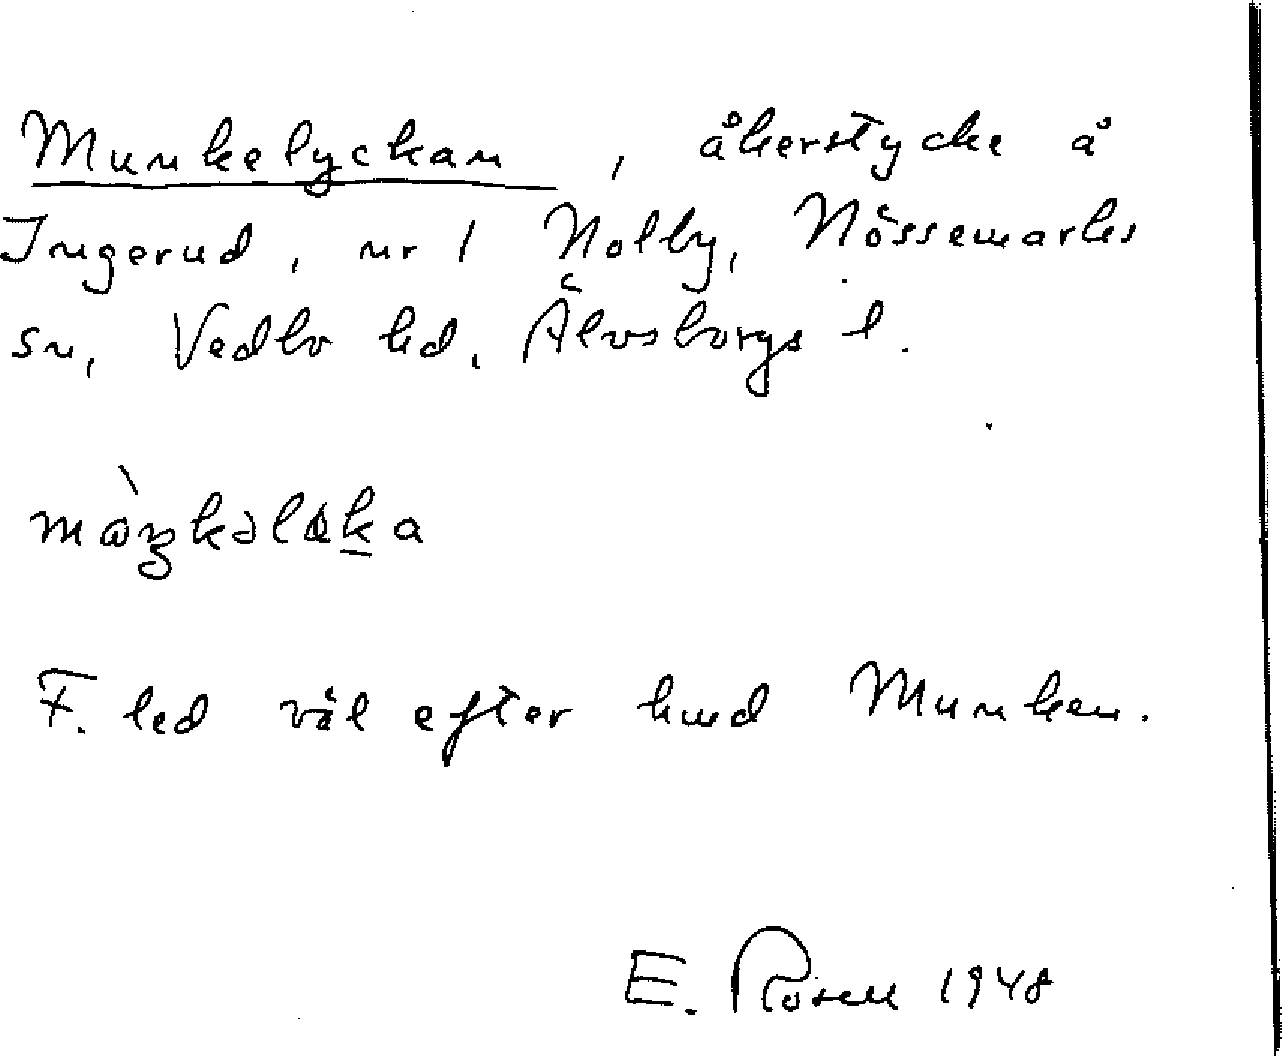 Munkelyckan, åkerstycke å
Ingerud, nr 1 Nolby, Nössemarks
sn, Vedbo hd. Älvsborgs l.
F. led väl efter hmd Munken.
E. Rosen 1948